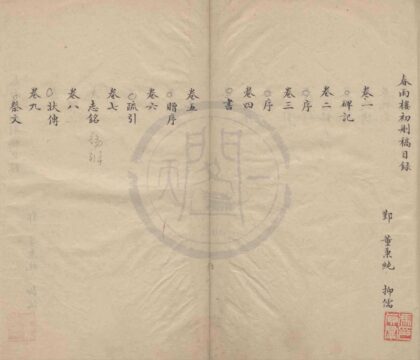 春雨樓初刪稿目錄
鄞 董秉純 抑儒
卷一
碑記
卷二
序
卷三
序
卷四
書
卷五
贈序
卷六
疏引
卷七
志銘
卷八
狀傳
卷九
祭文